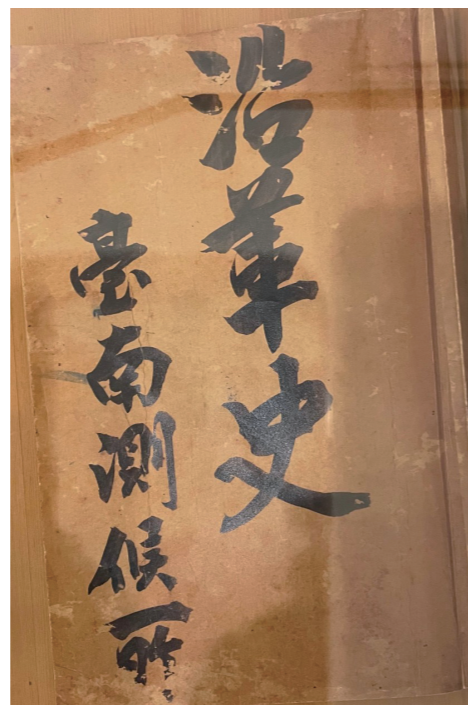 沿革史
臺南測候所